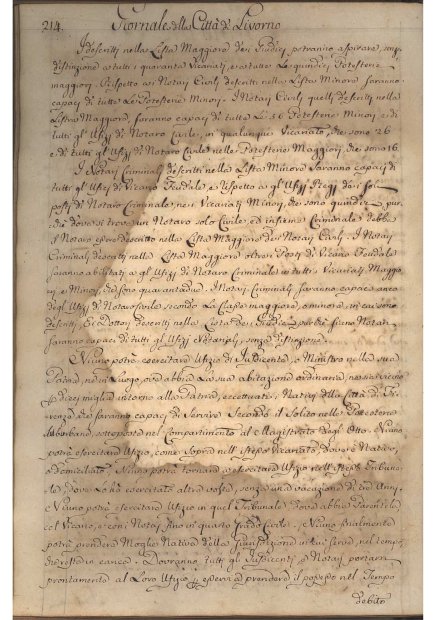 214. Giornale della Città di Livorno
I descritti nella Lista Maggiore dei Giudici potranno aspirare, senza
distinzione a tutti i quaranta Vicariati, et a tutte le quindici Potesterie
maggiori. Rispetto ai Notari Civili descritti nella Lista Minore saranno
capaci di tutte le Potesterie Minori. I Notari Civili quelli descritti nella
Lista Maggiore, saranno capaci di tutte le 56 Potesterie Minori e di
tutti gl'Ufizj di Notaro Civile, in qualunque Vicariato, che sono 26
e di tutti gl'Ufizj di Notaro Civile nelle Potesterie Maggiori, che sono 16.
I Notari Criminali descritti nella Lista Minore saranno capaci di
tutti gl'Ufizj di Vicario Feudale e rispetto a gl'Ufizj Regj dei soli
posti di Notaro Criminale nei Vicariati Minori, che sono quindici, pur
che dove si trova un Notaro solo Civile, ed insieme Criminale debba
il Notaro essere descritto nella Lista Maggiore dei Notari Civili. I Notari
Criminali descritti nella Lista Maggiore oltre i Posti di Vicario Feudale
saranno abilitati a gl'Ufizj di Notaro Criminale in tutti i Vicariati Maggio
ri, e Minori, che sono quarantadue. I Notari Criminali saranno capaci anco
degl'Ufizj di Notaro Civile secondo la Classe maggiore, o minore, in cui sono
descritti, E i Dottori descritti nella Lista dei Giudici purchè sieno Notari
saranno capaci di tutti gl'Ufizj Notariali, senza distinzione.
Niuno potrà esercitare Ufizio di Jusdicente, o Ministro nella sua
Patria, nè in Luogo, ove abbia la sua abitazione ordinaria, nè in vicinanza
di dieci miglia intorno alla Patria, eccettuati i Nativi della Città di Fi-
renze, che saranno capaci di Servire Secondo il Solito nelle Potesterie
Suburbane, sottoposte nel Compartimento al Magistrato degl'Otto. Niuno
potrà esercitare Ufizio, come Sopra nell'istesso Vicariato, dove è Nativo,
o domiciliato. Niuno potrà tornare ad esercitare Ufizio nell'istesso Tribuna-
le, dove abbia esercitato altra volta, senza una vacazione di tre Anni.
Niuno potrà esercitare Ufizio in quel Tribunale dove abbia Parentela
col Vicario, e con i Notari fino in quarto grado Civile. E Niuno finalmente
potrà prendere Moglie Nativa della Giurisdizione in cui serve, nel tempo,
che resta in carica. Dovranno tutti gli Jusdicenti, e Notari portarsi
prontamente al Loro Ufizio, e essere a prendere il possesso nel Tempo
debito